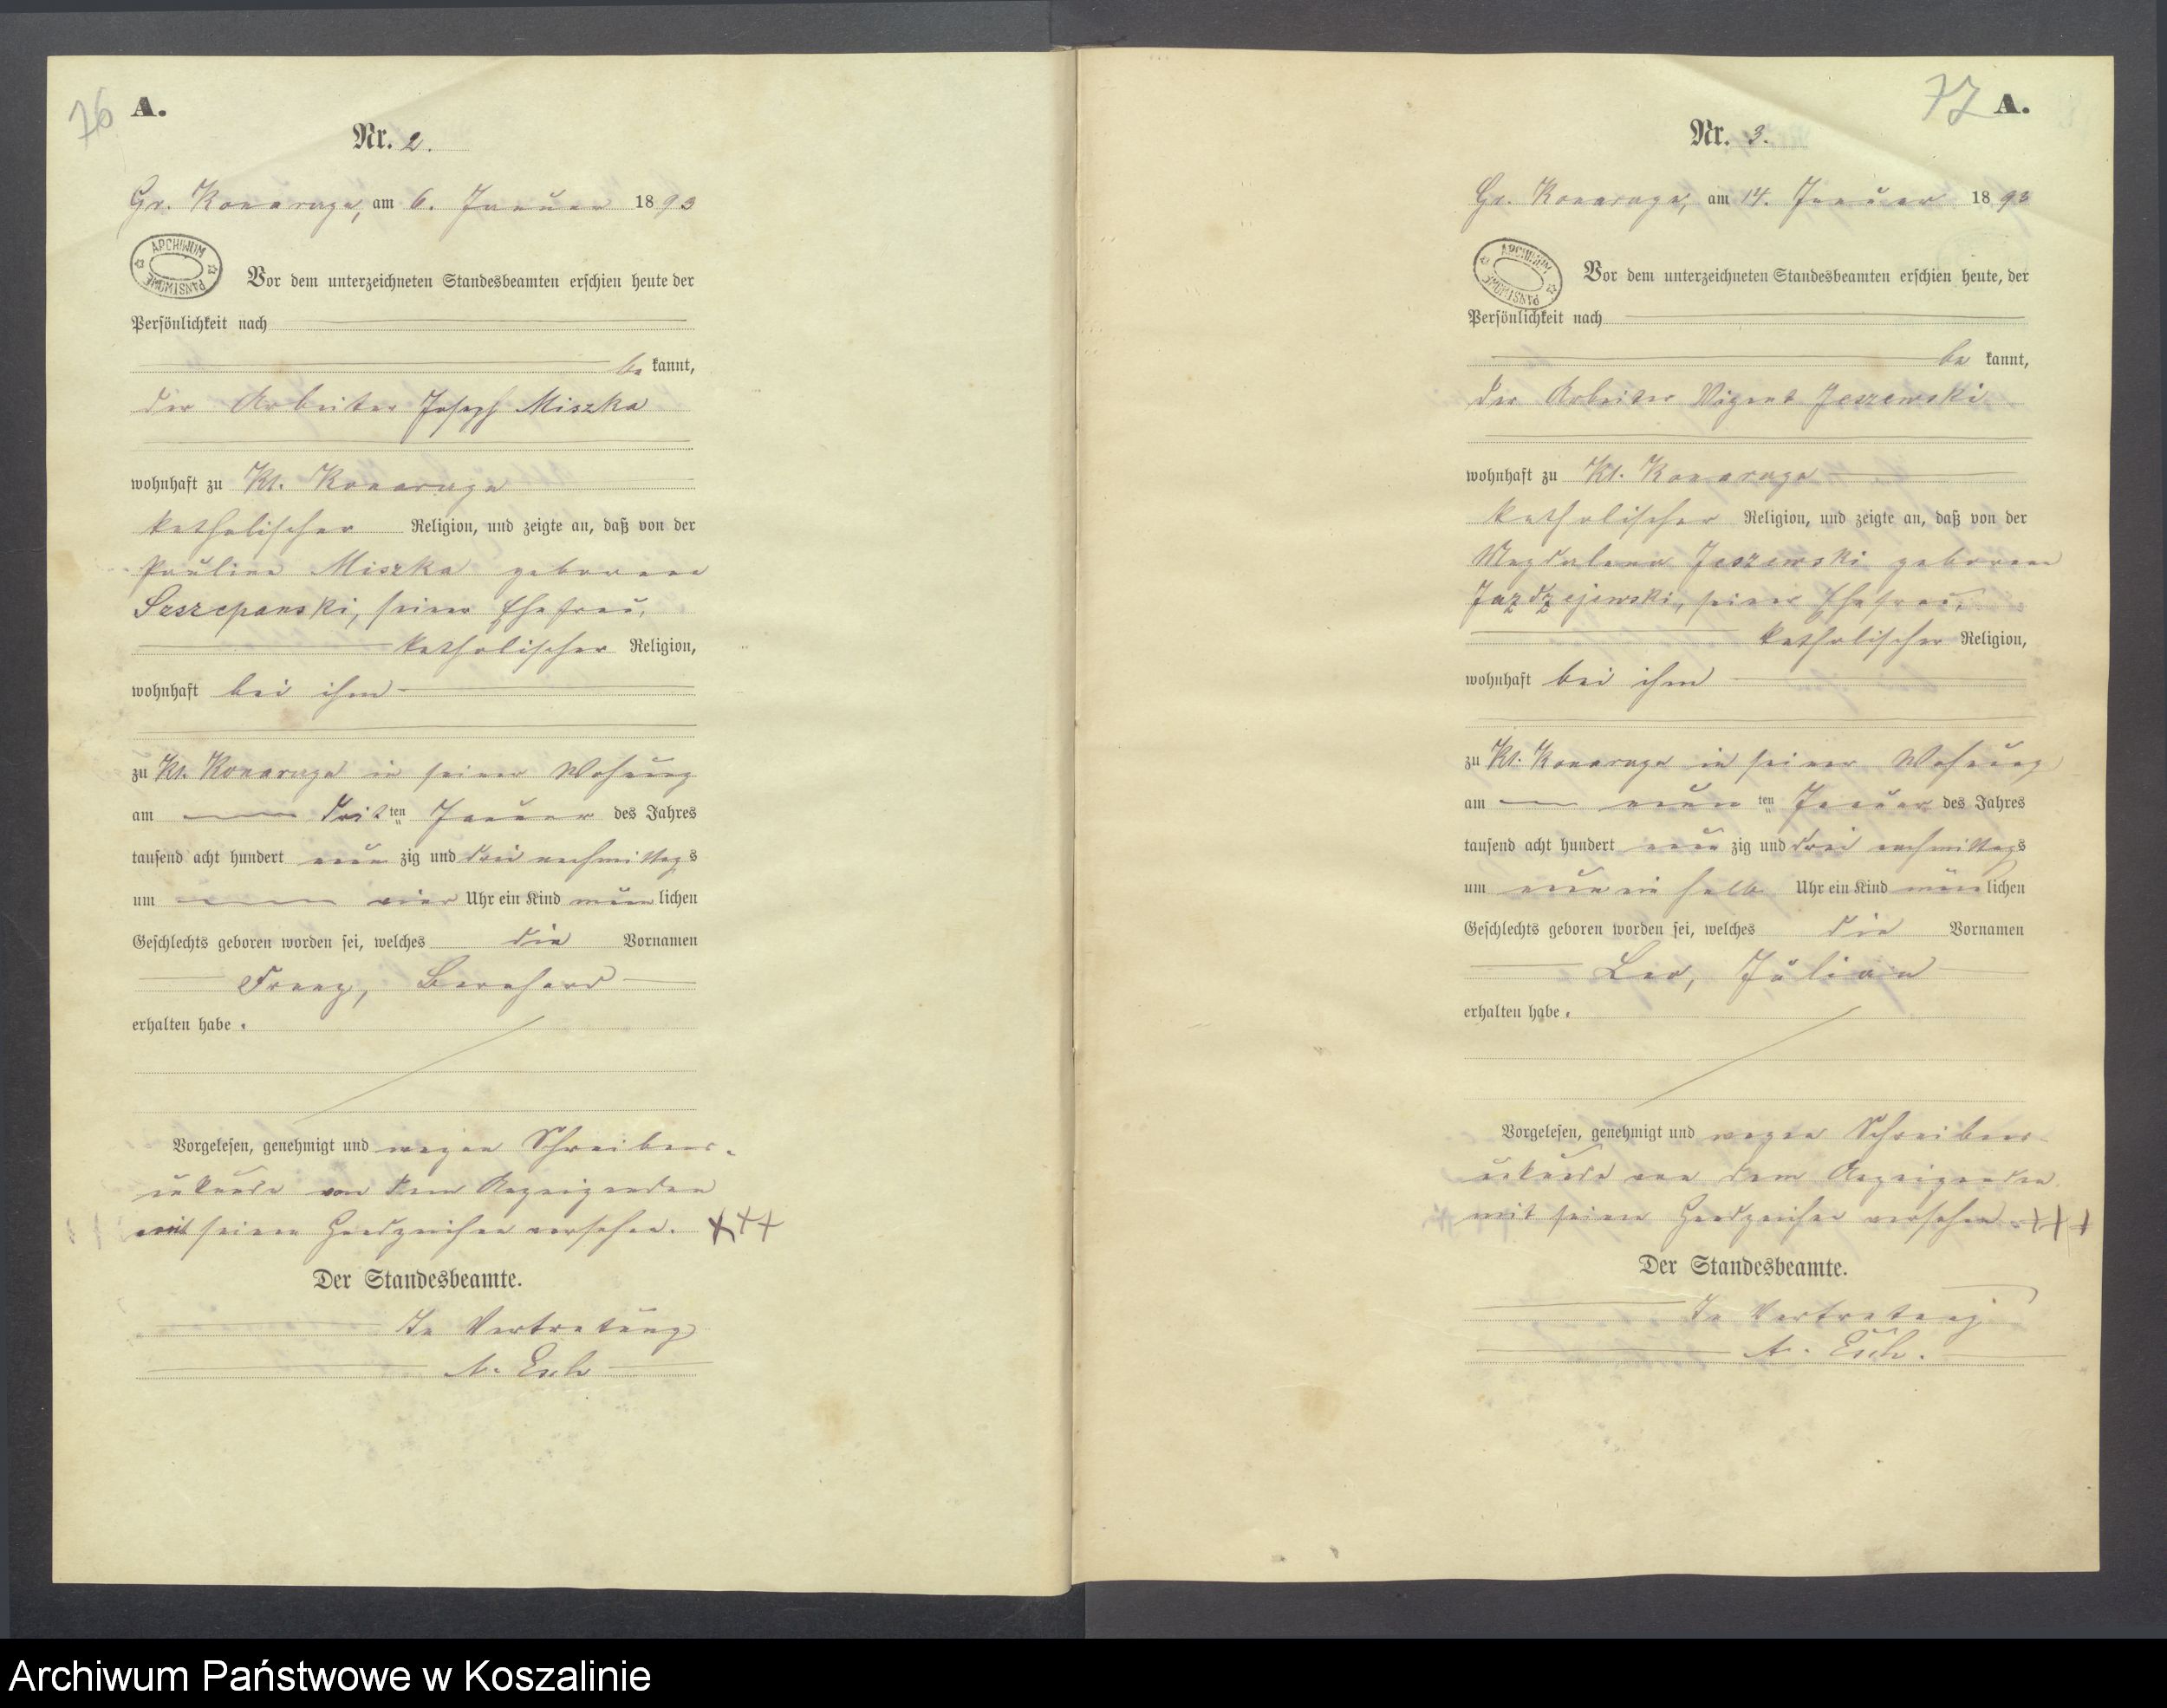 76
A.
Nr. 2.
Gr. Konarczyn, am 6. Januar 1893
ARCHIWUM PAŃSTWOWE
Vor dem unterzeichneten Standesbeamten erschien heute der
Persönlichkeit nach
be kannt,
der Arbeiter Joseph Miszka
wohnhaft zu Kl. Konarczyn
katholischer Religion, und zeigte an, daß von der
Pauline Miszka geborene
Szczepanski, seiner Ehefrau,
katholischer Religion,
wohnhaft bei ihm
zu Kl. Konarczyn in seiner Wohnung
am dritten Januar des Jahres
tausend acht hundert neun zig und drei nachmittags
um vier Uhr ein Kind männlichen
Geschlechts geboren worden sei, welches die Vornamen
Franz, Bernhard
erhalten habe.
Vorgelesen, genehmigt und wegen Schreibens-
unkunde von dem Anzeigenden
mit seinem Handzeichen versehen. +++
Der Standesbeamte.
In Vertretung
A. Esch
77
A.
Nr. 3.
Gr. Konarczyn, am 14. Januar 1893
ARCHIWUM PAŃSTWOWE
Vor dem unterzeichneten Standesbeamten erschien heute, der
Persönlichkeit nach
be kannt,
der Arbeiter Vigent Jeszewski
wohnhaft zu Kl. Konarczyn
katholischer Religion, und zeigte an, daß von der
Magdalena Jeszewski geborene
Jazdzejewski, seiner Ehefrau,
katholischer Religion,
wohnhaft bei ihm
zu Kl. Konarczyn in seiner Wohnung
am neunten Januar des Jahres
tausend acht hundert neun zig und drei nachmittags
um neun ein halb Uhr ein Kind männlichen
Geschlechts geboren worden sei, welches die Vornamen
Leo, Julian
erhalten habe.
Vorgelesen, genehmigt und wegen Schreibens-
unkunde von dem Anzeigenden
mit seinem Handzeichen versehen. +++
Der Standesbeamte.
In Vertretung
A. Esch.
Archiwum Państwowe w Koszalinie